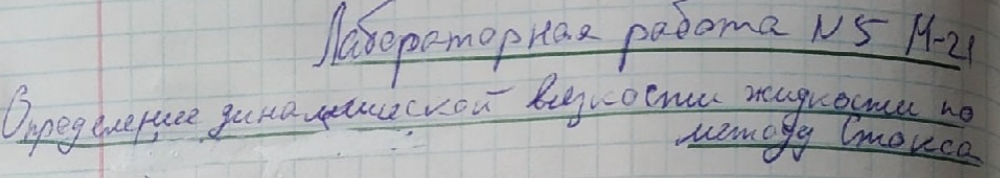 Лабораторная работа N5 М-21
Определение динамической вязкости жидкости по
методу Стокса